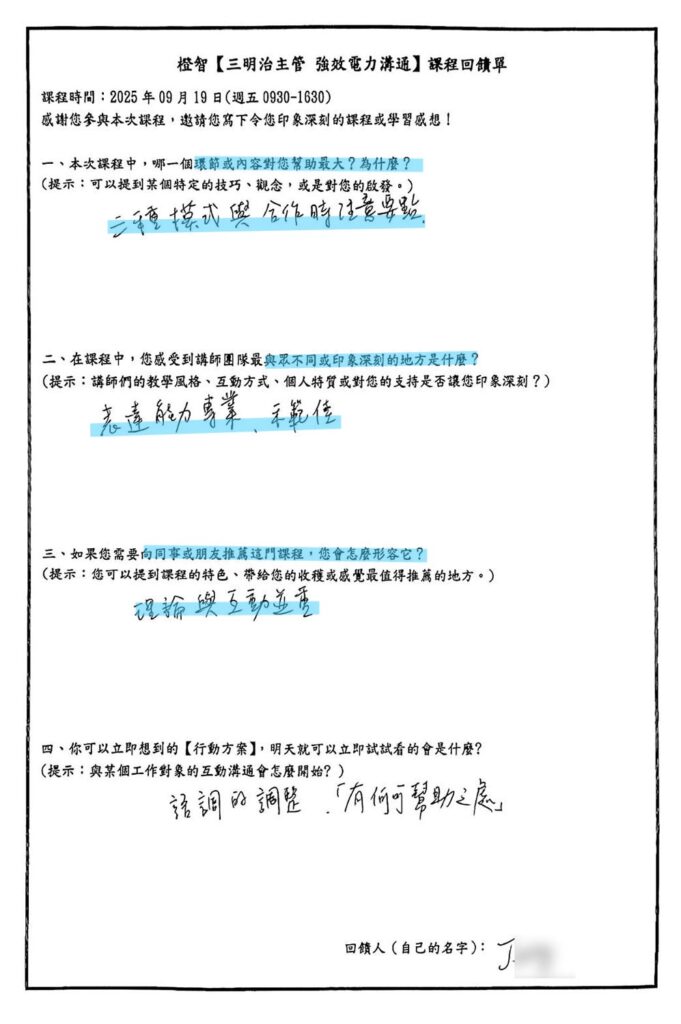 橙智【三明治主管 強效電力溝通】課程回饋單
課程時間：2025 年 09 月 19 日(週五 0930-1630)
感謝您參與本次課程，邀請您寫下令您印象深刻的課程或學習感想！
一、本次課程中，哪一個環節或內容對您幫助最大？為什麼？
(提示：可以提到某個特定的技巧、觀念，或是對您的啟發。)
三種模式與合作時注意要點.
二、在課程中，您感受到講師團隊最與眾不同或印象深刻的地方是什麼？
(提示：講師們的教學風格、互動方式、個人特質或對您的支持是否讓您印象深刻？)
表達能力專業、示範佳
三、如果您需要向同事或朋友推薦這門課程，您會怎麼形容它？
(提示：您可以提到課程的特色、帶給您的收穫或感覺最值得推薦的地方。)
理論與互動並重
四、你可以立即想到的【行動方案】，明天就可以立即試試看的會是什麼?
(提示：與某個工作對象的互動溝通會怎麼開始？)
語調的調整、「有何可幫助之處」
回饋人（自己的名字）： J.